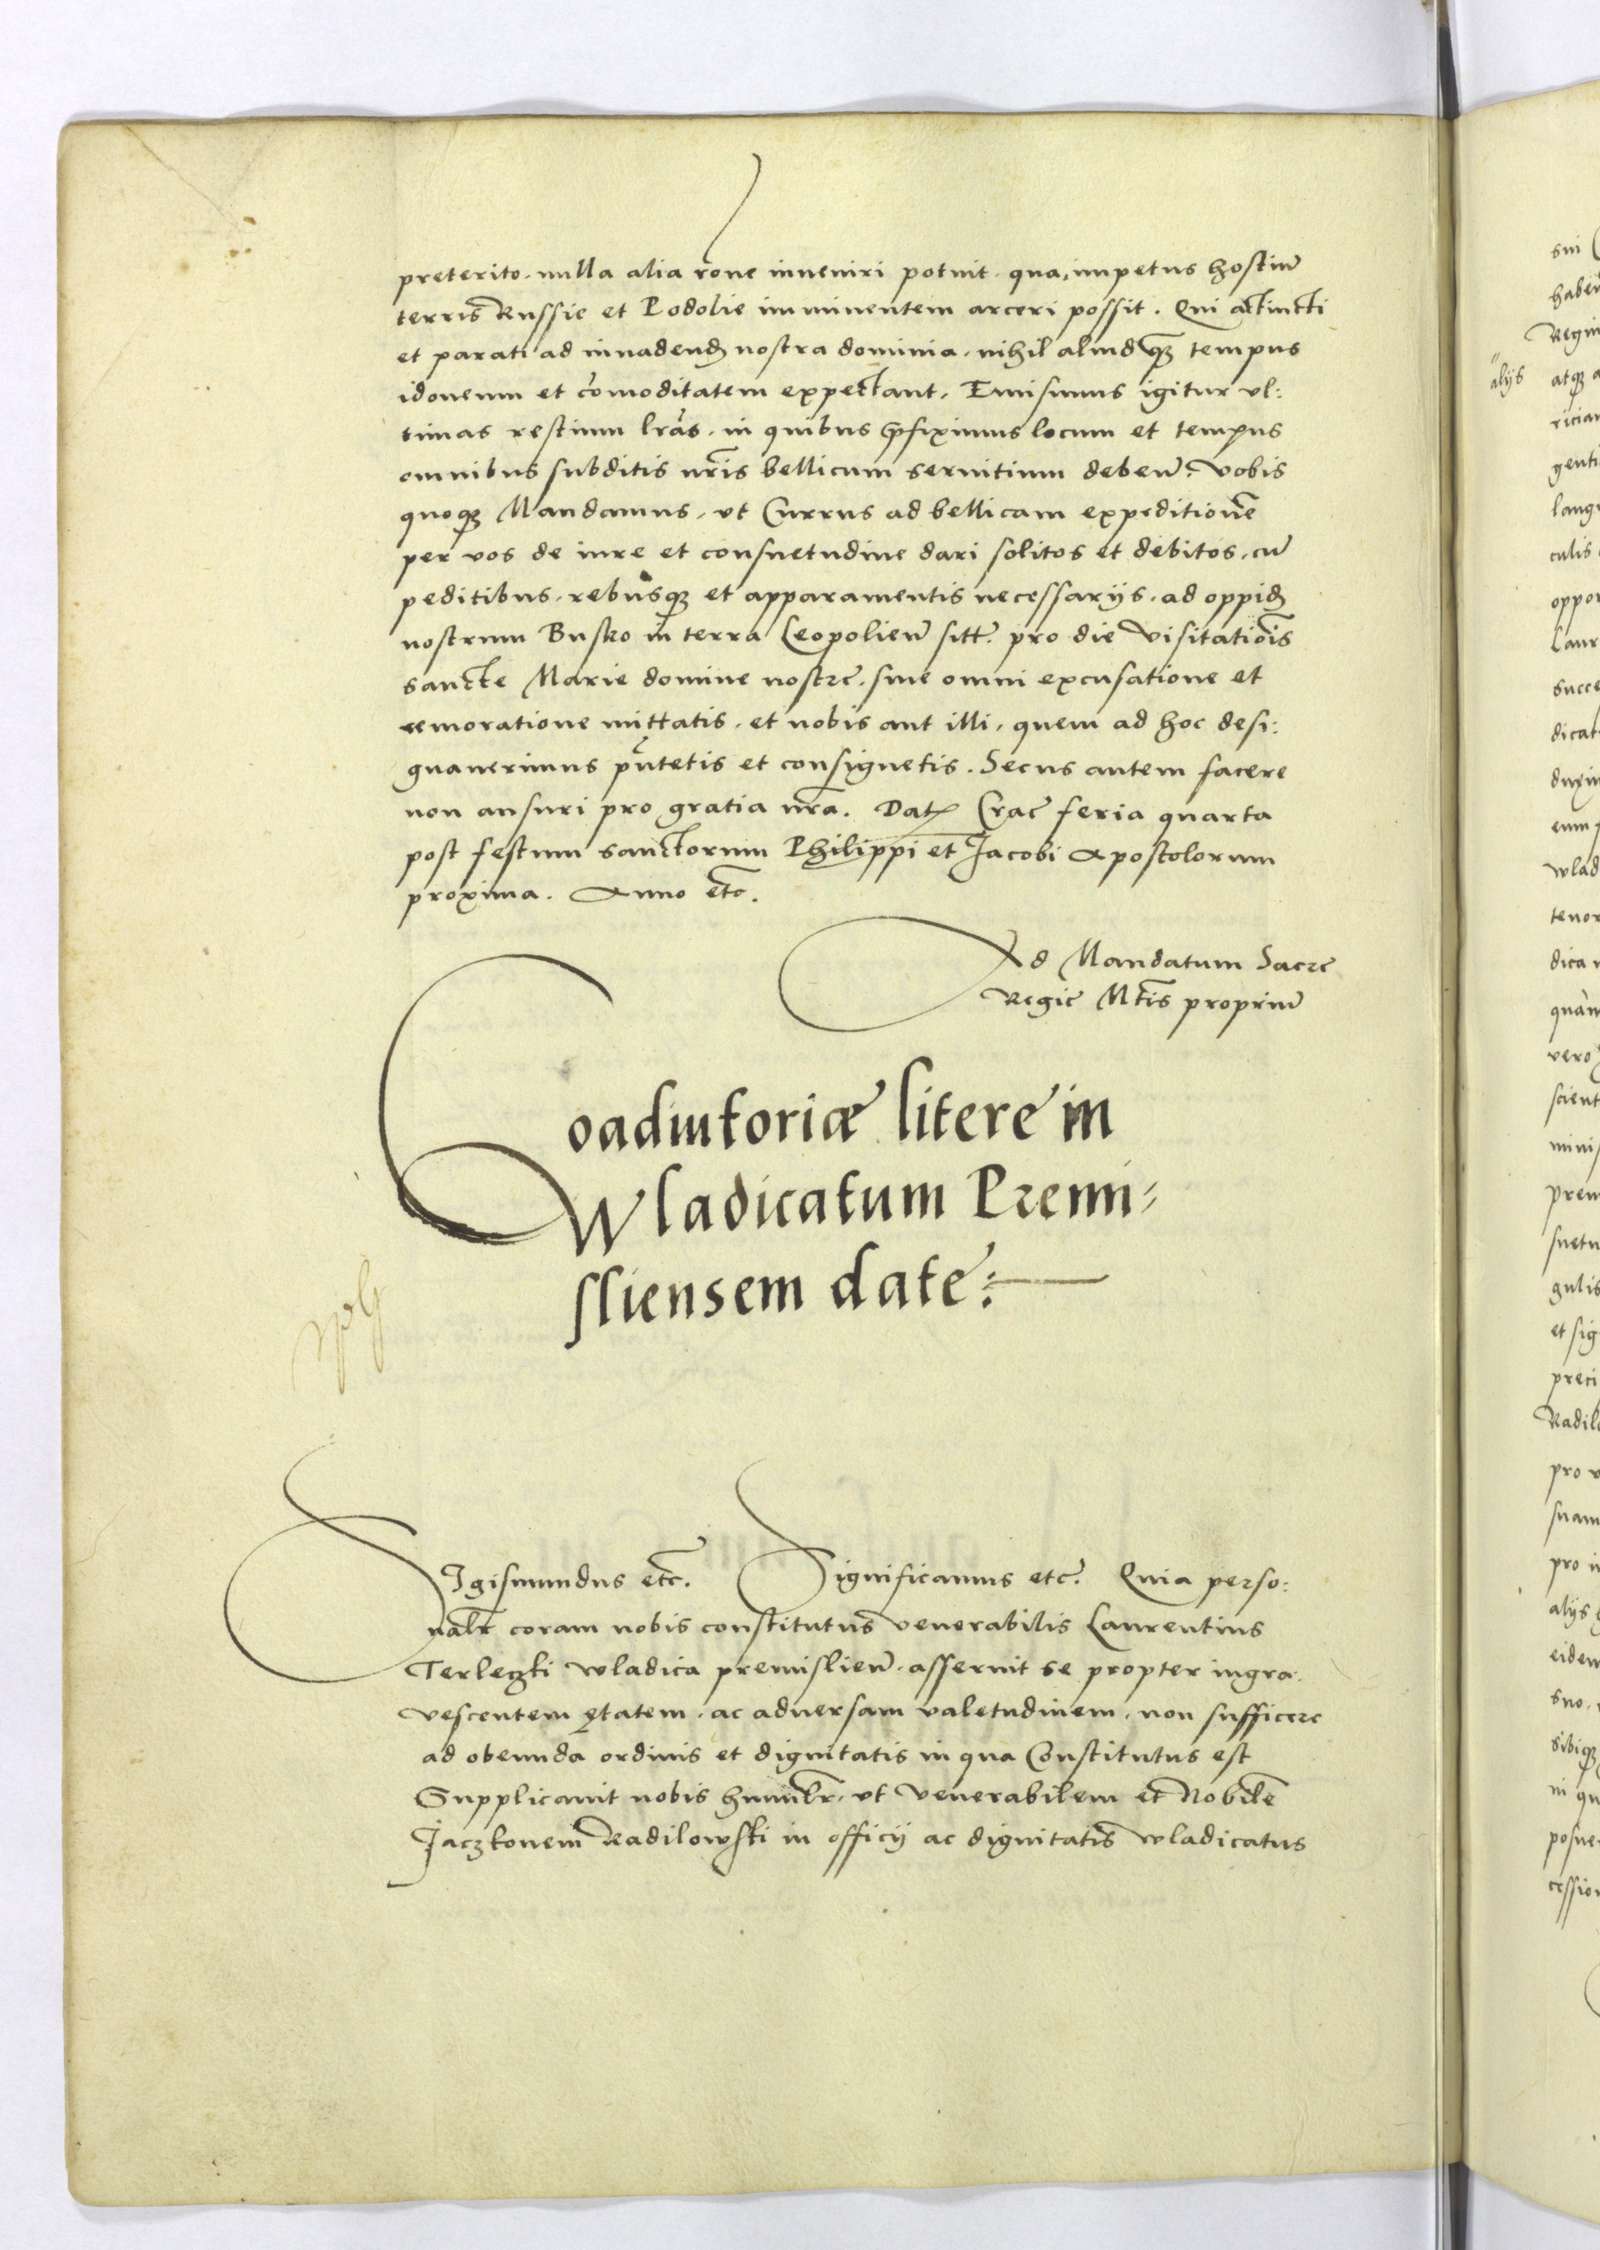 preterito. nulla alia rõne inueniri potuit. qua, impetus hostiũ
terris Russie et Podolie imminentem arceri possit. Qui accincti
et parati ad inuadend nostra dominia. nihil aliud q̃ tempus
idoneum et cõmoditatem expectant. Emisimus igitur vl:
timas restium lr̃as. in quibus p̃fiximus locum et tempus
omnibus subditis nr̃is bellicum seruitium debeñ. Vobis
quoq3 Mandamus. vt Currus ad bellicam expeditionẽ
per vos de iure et consuetudine dari solitos et debitos. cũ
peditibus. rebusq3 et apparamentis necessariis. ad oppid
nostrum Busko in terra Leopolieñ sitt. pro die Visitatiõis
sancte Marie domine nostre. sine omni excusatione et
remoratione mittatis. et nobis aut illi. quem ad hoc desi:
gnauerimus p̃ntetis et consignetis. Secus autem facere
non ausuri pro gratia nr̃a. Dat Crac̃ feria quarta
post festum sanctorum Philippi et Jacobi Apostolorum
proxima. Anno etc̃.
Ad Mandatum Sacre
Regie Mtis propriũ
Coadiutoriæ litere in
Wladicatum Premi=
sliensem date:
Sigismundus etc̃. Significamus etc̃. Quia perso:
nalr̃ coram nobis constitutus venerabilis Laurentius
Terleczki wladica premislieñ. asseruit se propter ingra
vescentem ętatem. ac aduersam valetudinem. non sufficere
ad obeunda ordinis et dignitatis in qua Constitutus est
Supplicauit nobis humilr̃. vt Venerabilem et Nobilẽ
Jaczkonem Radilowski in officij ac dignitatis wladicatus
sui
Regin
alijs
genti
culis
oppor
succe
dicat
wlad
tenor
vero
scient
prem
gulis
et sig
preci
pro
suam
alijs
eidem
suo.
sibiq3
cessio